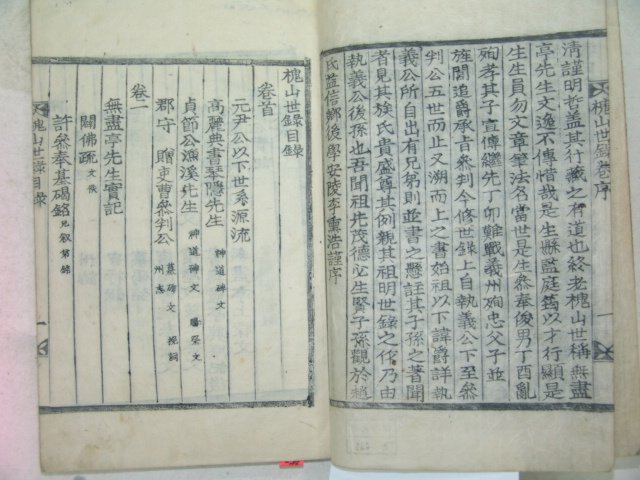 淸謹明哲盖其行藏之有道也終老槐山世稱無盡
亭先生文逸不傳惜哉是生縣監庭筠以才行顯是
生生員勿文章筆法名當世是生參奉俊男丁酉亂
殉孝其子宣傳繼先丁卯難戰義州殉忠父子並
旌閭追爵承旨參判今修世錄上自執義公下至參
判公五世而止又溯而上之書始祖以下諱爵詳執
義公所自出有兄弟則並書之懸註其子孫之著聞
者見其族氏貴盛尊其例親其祖明世錄之作乃由
執義公後孫也吾聞祖先茂德必生賢子孫觀於趙
氏益信鄕後學安陵李重浩謹序
槐山世錄卷序
一
槐山世錄目錄
卷首
元尹公以下世系源流
高麗典書琴隱先生 神道碑文
貞節公漁溪先生 神道碑文
郡守贈吏曹參判公 墓碣文 州志
卷一
無盡亭先生實記
闢佛疏 文佚
許參奉墓碣銘
槐山世錄目錄
一